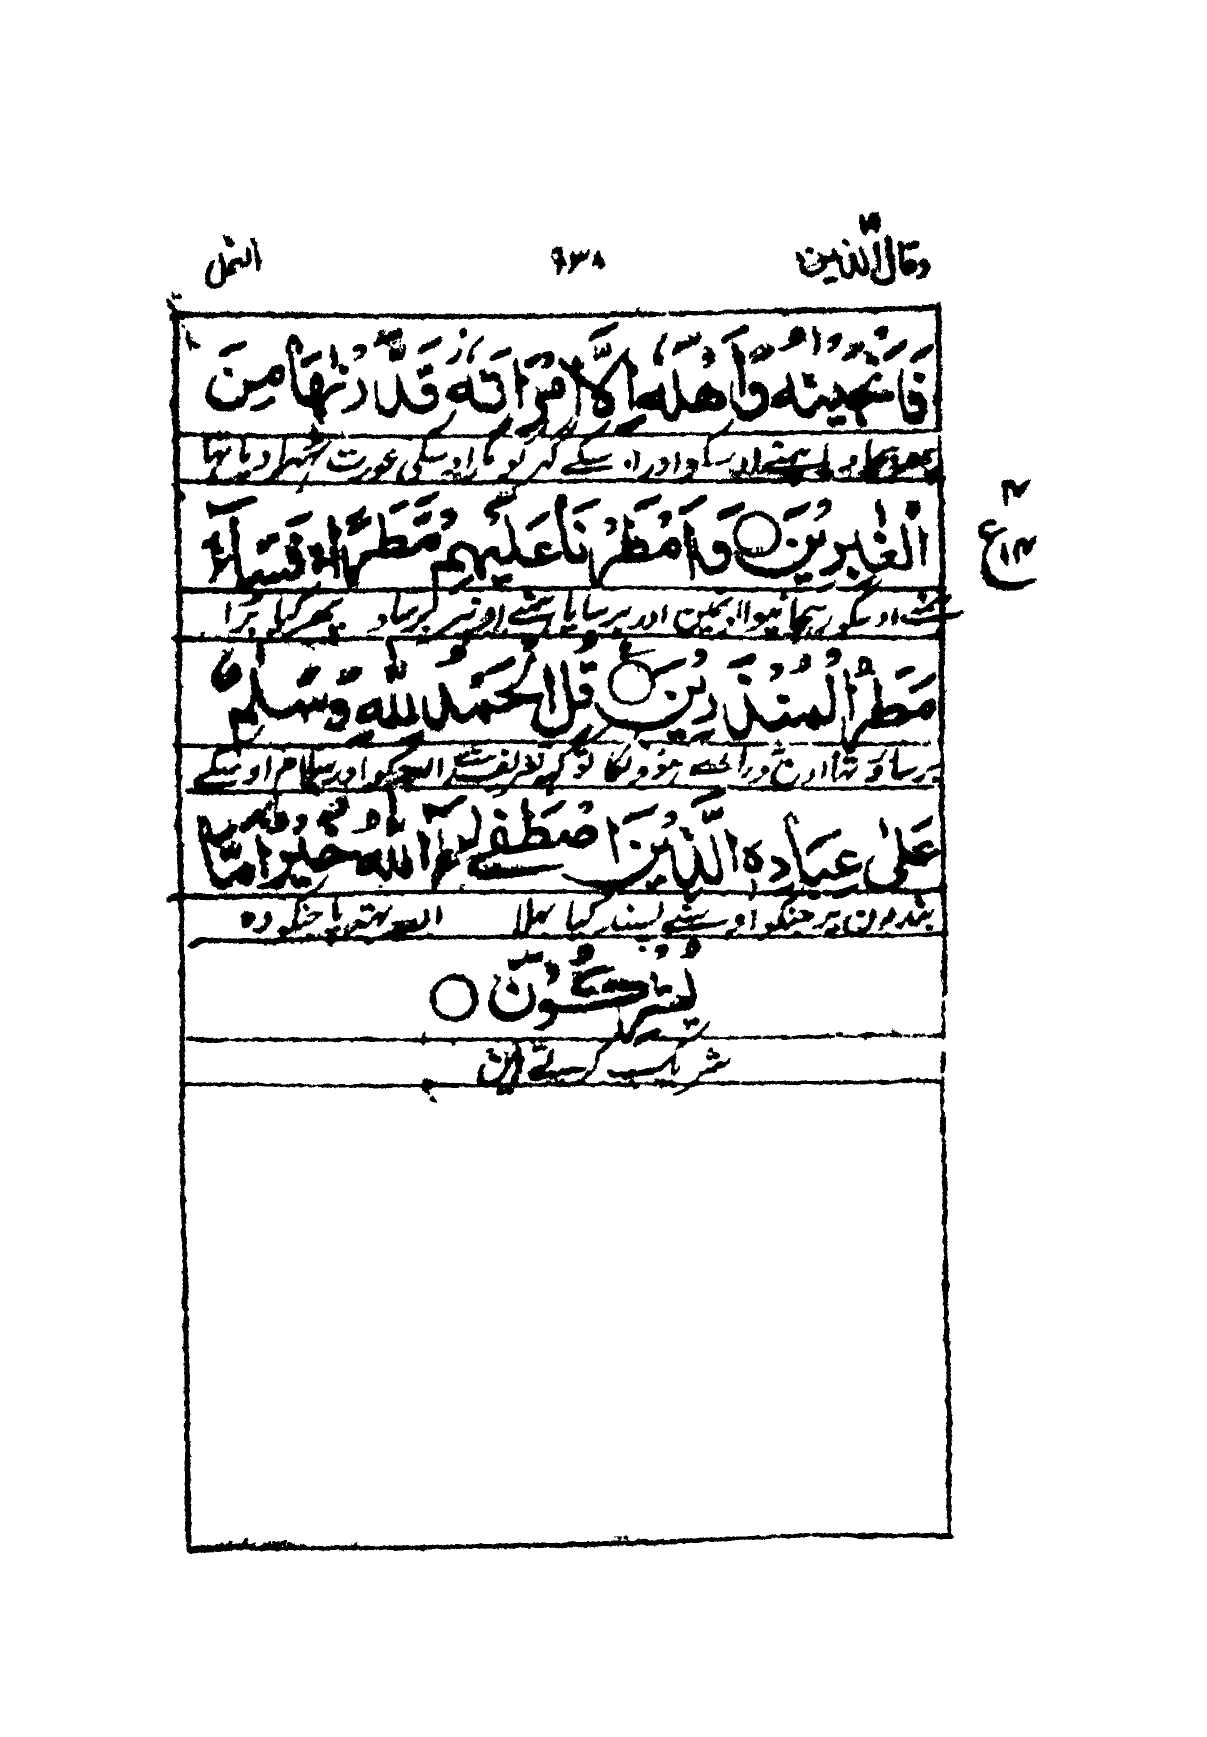 وقال الّذين ۱۹ ۶۳۸ النمل
فَاَنْجَيْنٰهُ وَاَهْلَهٗۤ اِلَّا امْرَاَتَهٗ قَدَّرْنٰهَا مِنَ
پھر بچا دیا ہمنے اوسکو اور اوسکے گھر کو مگر اوسکی عورت ٹھہرا دیا تھا
الْغٰبِرِيْنَ ○ وَاَمْطَرْنَا عَلَيْهِمْ مَّطَرًا ۚ فَسَآءَ
ہمنے اوسکو رہجانیوالونمین اور برسایا ہمنے اونپر برساو پھر کیا برا
مَطَرُ الْمُنْذَرِيْنَ ○ قُلِ الْحَمْدُ لِلّٰهِ وَسَلٰمٌ
برساو تھا اون ڈرائے ہوؤنکا تو کہہ تعریف ہے اللہ کو اور سلام اوسکے
عَلٰى عِبَادِهِ الَّذِيْنَ اصْطَفٰى ؕ ءٰٓاللّٰهُ خَيْرٌ اَمَّا
بندون پر جنکو اوسنے پسند کیا بھلا اللہ بہتر یا جنکو وہ
يُشْرِكُوْنَ ○
شریک کرتے ہین
۴
ع
۱۴